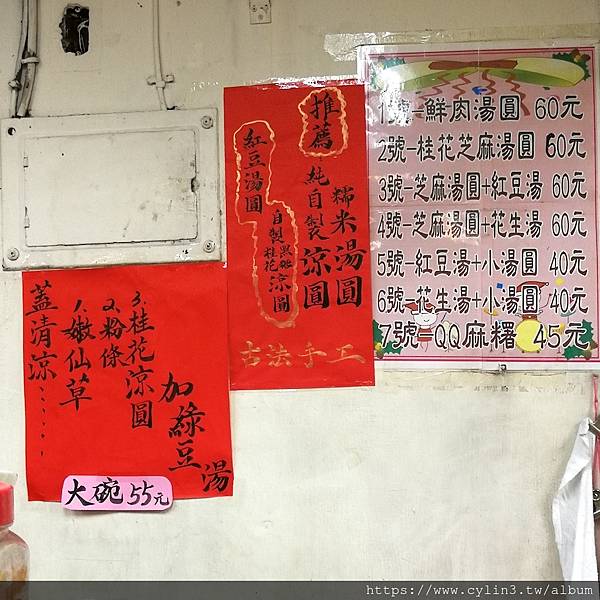 1號-鮮肉湯圓 60元
2號-桂花芝麻湯圓 60元
3號-芝麻湯圓+紅豆湯 60元
4號-芝麻湯圓+花生湯 60元
5號-紅豆湯+小湯圓 40元
6號-花生湯+小湯圓 40元
7號-QQ麻糬 45元
推薦
糯米湯圓
純自製涼圓
紅豆湯圓
自製黑糖桂花涼圓
古法手工
加綠豆湯
3.桂花涼圓
2.粉條
1.嫩仙草
蓋清涼......
大碗55元
https://www.cylin3.tw/album